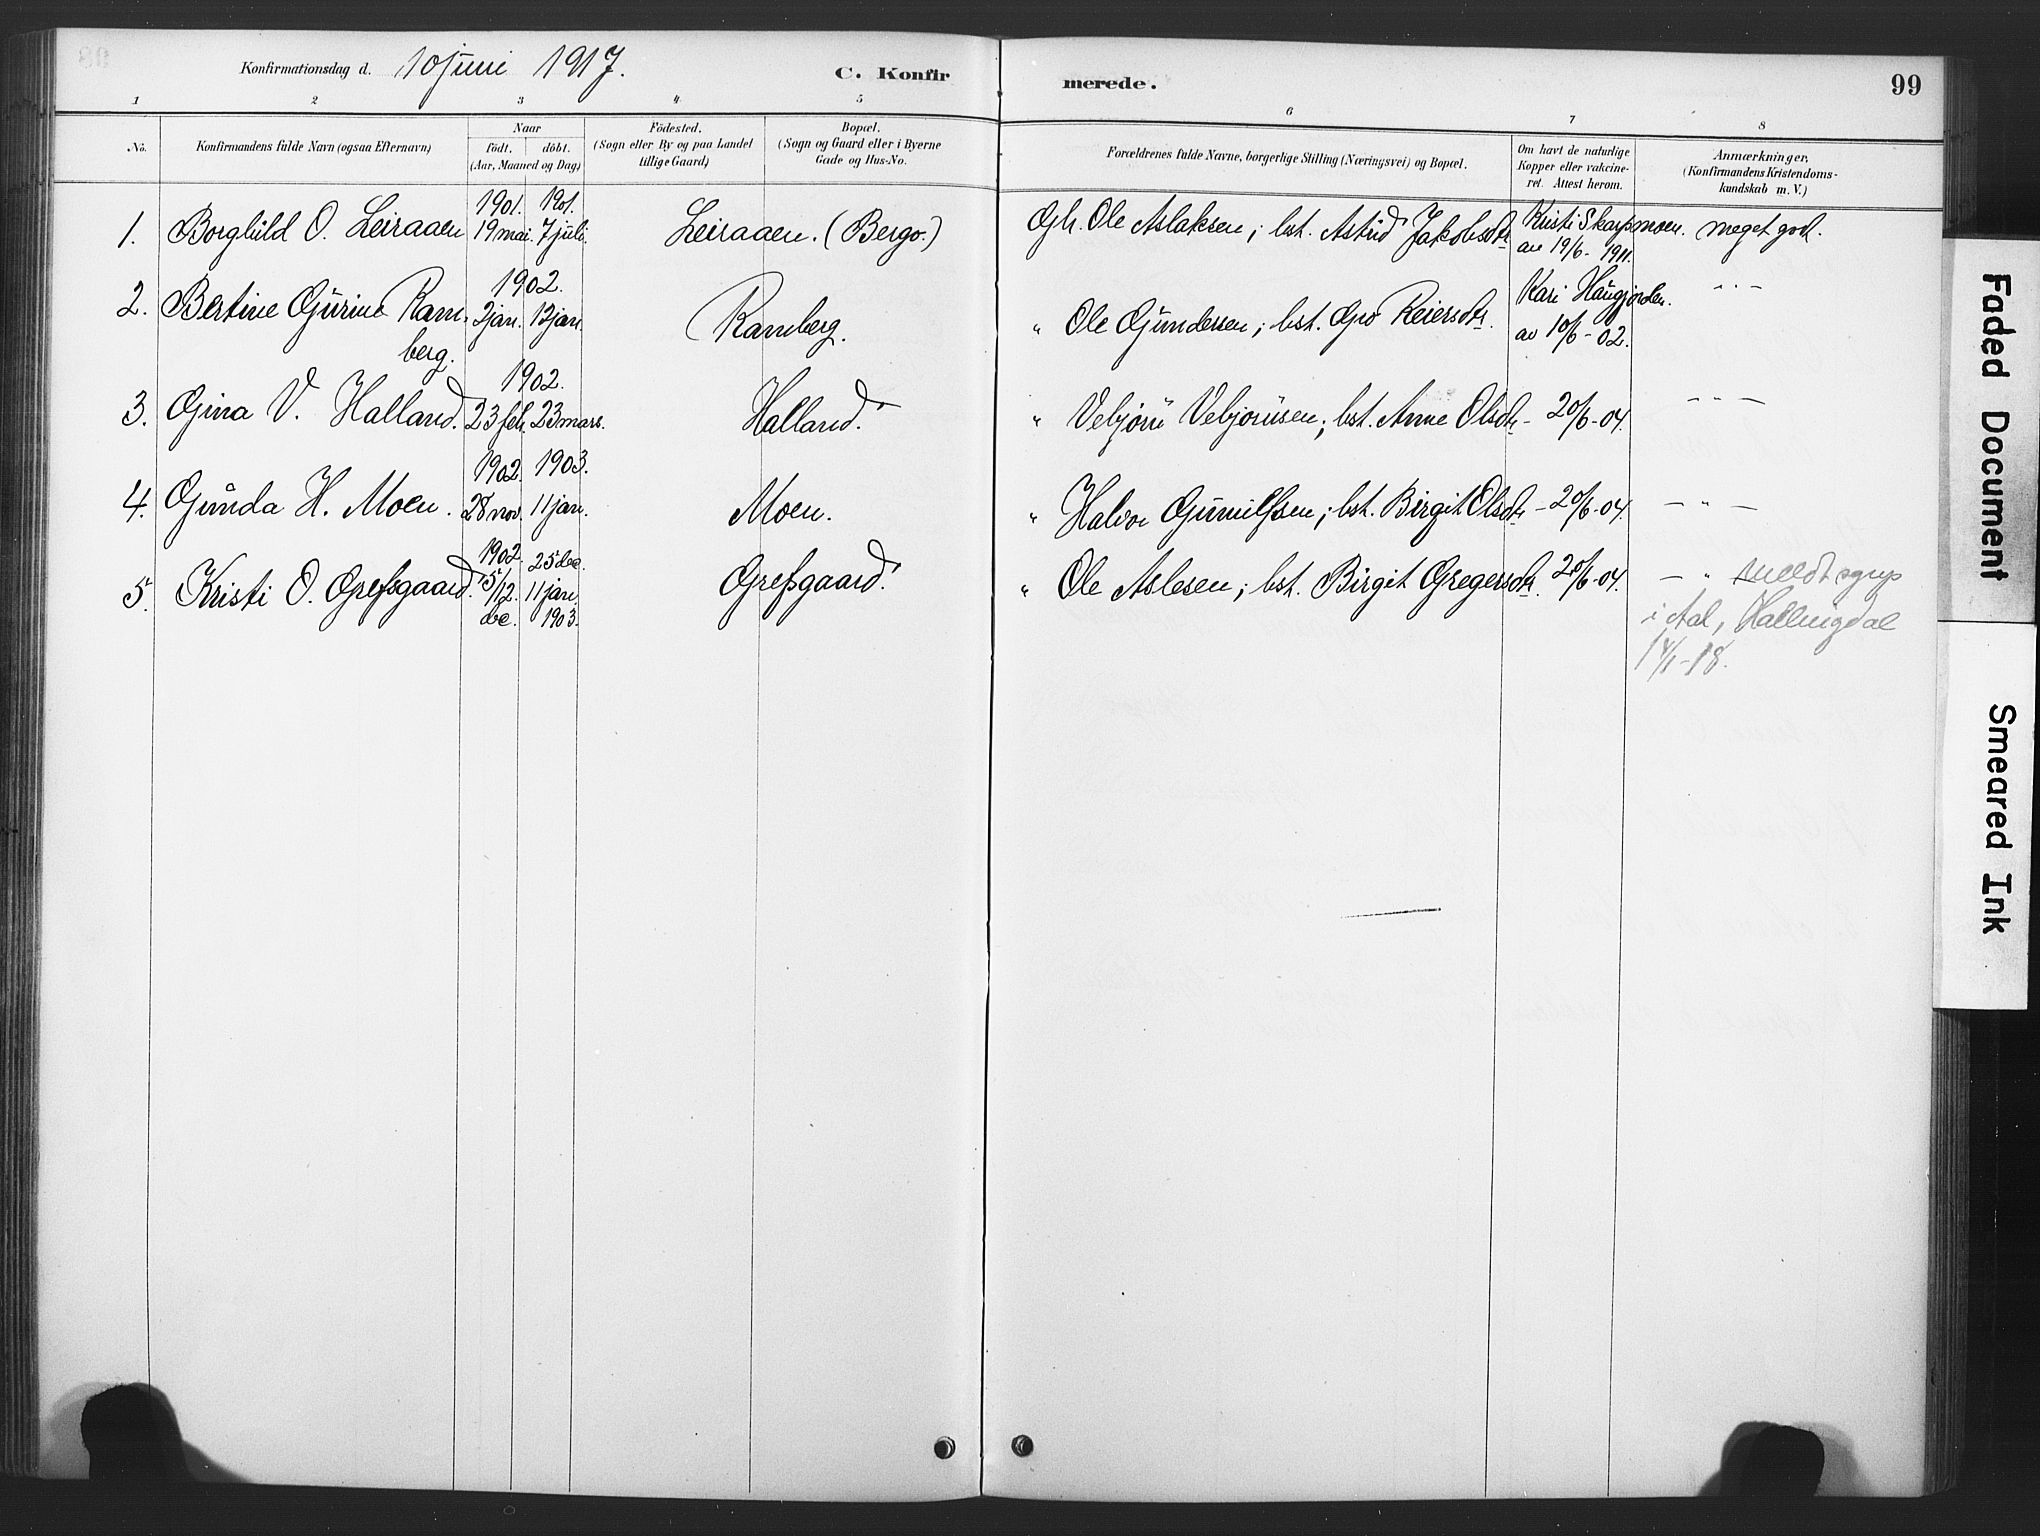 Konfirmationsdag d. 10 juni 1917. C. Konfir merede. 99
1 2 3 4 5 6 7 8
No. Konfirmandens fulde Navn (ogsaa Efternavn) Naar Födested. Bopæl. Forældrenes fulde Navne, borgerlige Stilling (Næringsvei) og Bopæl. Om havt de naturlige Anmærkninger,
födt. döbt. (Sogn eller By og paa Landet (Sogn og Gaard eller i Byerne Kopper eller vakcine- (Konfirmandens Kristendoms-
(Aar, Maaned og Dag) tillige Gaard) Gade og Hus-No. ret. Attest herom. kundskab m. V.)
1901. 1901.
1. Borghild O. Leiraaen 19 mai. 7 juli. Leiraaen. (Bergo.) Gbr. Ole Aslaksen; hst. Astrid Jakobsdtr. Kristi Skarpmoen. meget godt.
av 19/6 - 1911.
1902.
2. Bertine Gurine Ram- 2 jan. 12 jan. Ramberg. " Ole Gundersen; hst. Gro Reiersdtr. Kari Haugjorden. - " -
berg. av 10/6 - 02.
1902.
3. Gina V. Halland. 23 feb. 23 mars. Halland. " Vebjørn Vebjørnsen; hst. Anne Olsdtr - 20/6 - 04. - " -
1902. 1903.
4. Gunda H. Moen. 28 nov. 11 jan. Moen. " Halvor Gunulfsen; hst. Birgit Olsdtr - 20/6 - 04. - " -
1902. 25 de.
5. Kristi O. Grefsgaard. 5/12 11 jan. Grefsgaard. " Ole Aslesen; hst. Birgit Gregersdtr. 20/6 - 04. - "
de. 1903.
i Aal, Hallingdal
14/1 - 18.
Faded Document
Smeared Ink